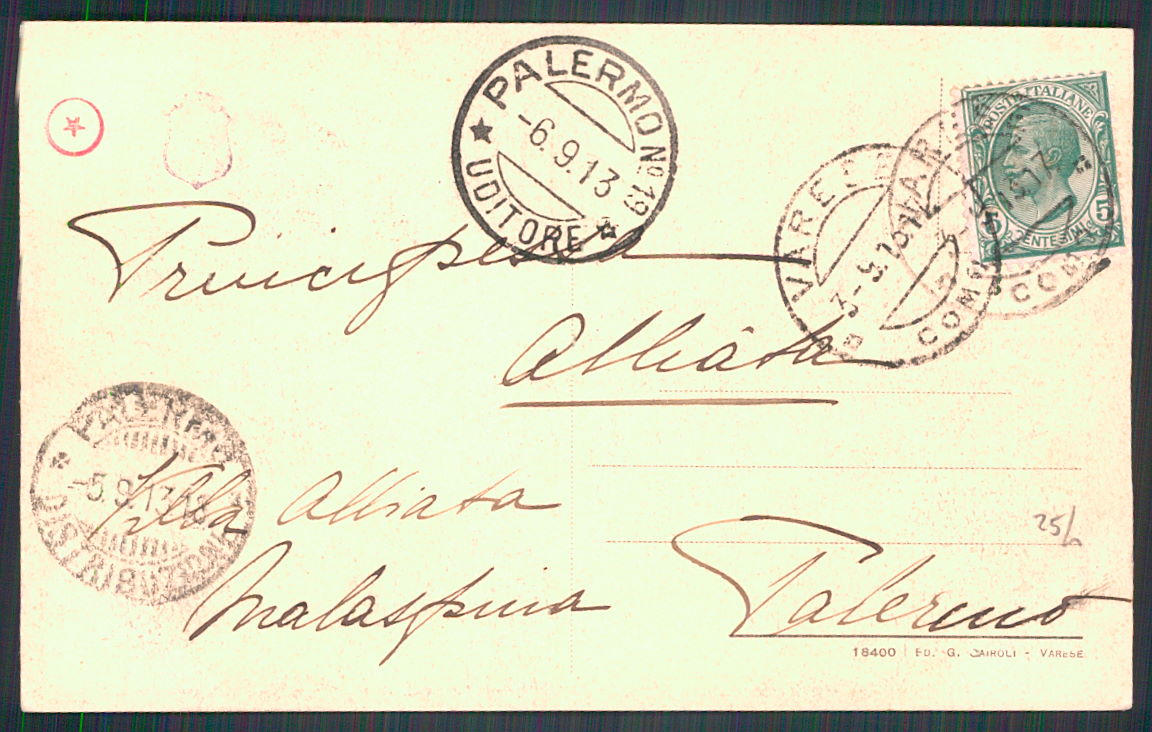 PALERMO Nº 19
-6.9.13
UDITORE
POSTE ITALIANE
5 CENTESIMI 5
VARESE
3-9
COMO
COMO
Principessa
Alliata
PALERMO
-5.9.13 18
DISTRIBUZIONE
Villa Alliata
Malaspina
Palermo
25/
18400 ED. G. CAIROLI - VARESE